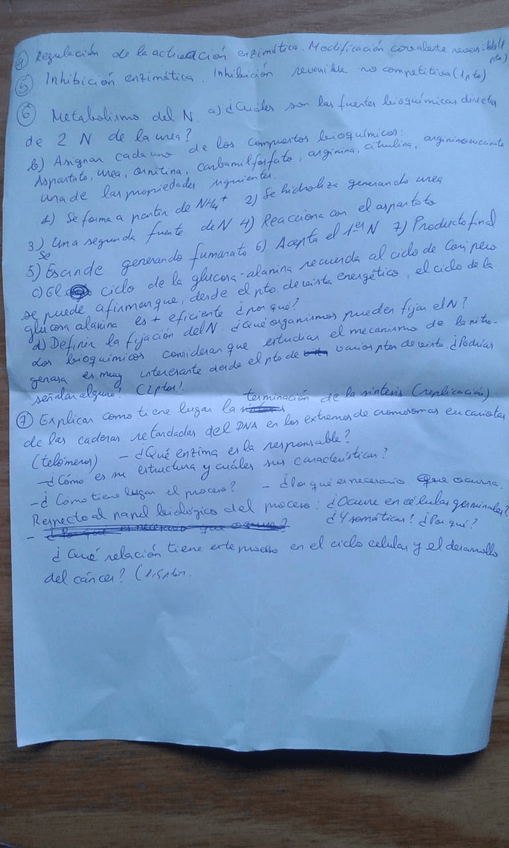 ④ Regulación de la activación enzimática. Modificación covalente reversible (1 pto)
⑤ Inhibición enzimática. Inhibición reversible no competitiva (1 pto)
⑥ Metabolismo del N. a) ¿Cuáles son las fuentes bioquímicas directas
de 2 N de la urea?
b) Asignar cada uno de los compuestos bioquímicos:
Aspartato, urea, ornitina, carbamilfosfato, arginina, citrulina, argininosuccinato
una de las propiedades siguientes.
1) Se forma a partir de NH4+ 2) Se hidroliza generando urea
3) Una segunda fuente de N 4) Reacciona con el aspartato
5) Se Escinde generando fumarato 6) Acepta el 1er N 7) Producto final
c) El ciclo de la glucosa-alanina recuerda al ciclo de Cori, pero
se puede afirmar que, desde el pto de vista energético, el ciclo de la
glucosa alanina es + eficiente ¿por qué?
d) Definir la fijación del N ¿Qué organismos pueden fijar el N?
Los bioquímicos consideran que estudiar el mecanismo de la nitro-
genasa es muy interesante desde el pto de varios ptos de vista ¿Podrías
señalar alguno? (2 ptos)
⑦ Explicar como tiene lugar la terminación de la síntesis (replicación)
de las cadenas retardadas del DNA en los extremos de cromosomas eucariotas
(telómeros) – ¿Qué enzima es la responsable?
– ¿Cómo es su estructura y cuáles sus características?
– ¿Como tiene lugar el proceso? – ¿Por qué es necesario que ocurra.
Respecto al papel biológico del proceso: ¿Ocurre en células germinales?
– ¿Por qué es necesario que ocurra? ¿Y somáticas? ¿Por qué?
¿Qué relación tiene este proceso en el ciclo celular y el desarrollo
del cáncer? (1,5 ptos.